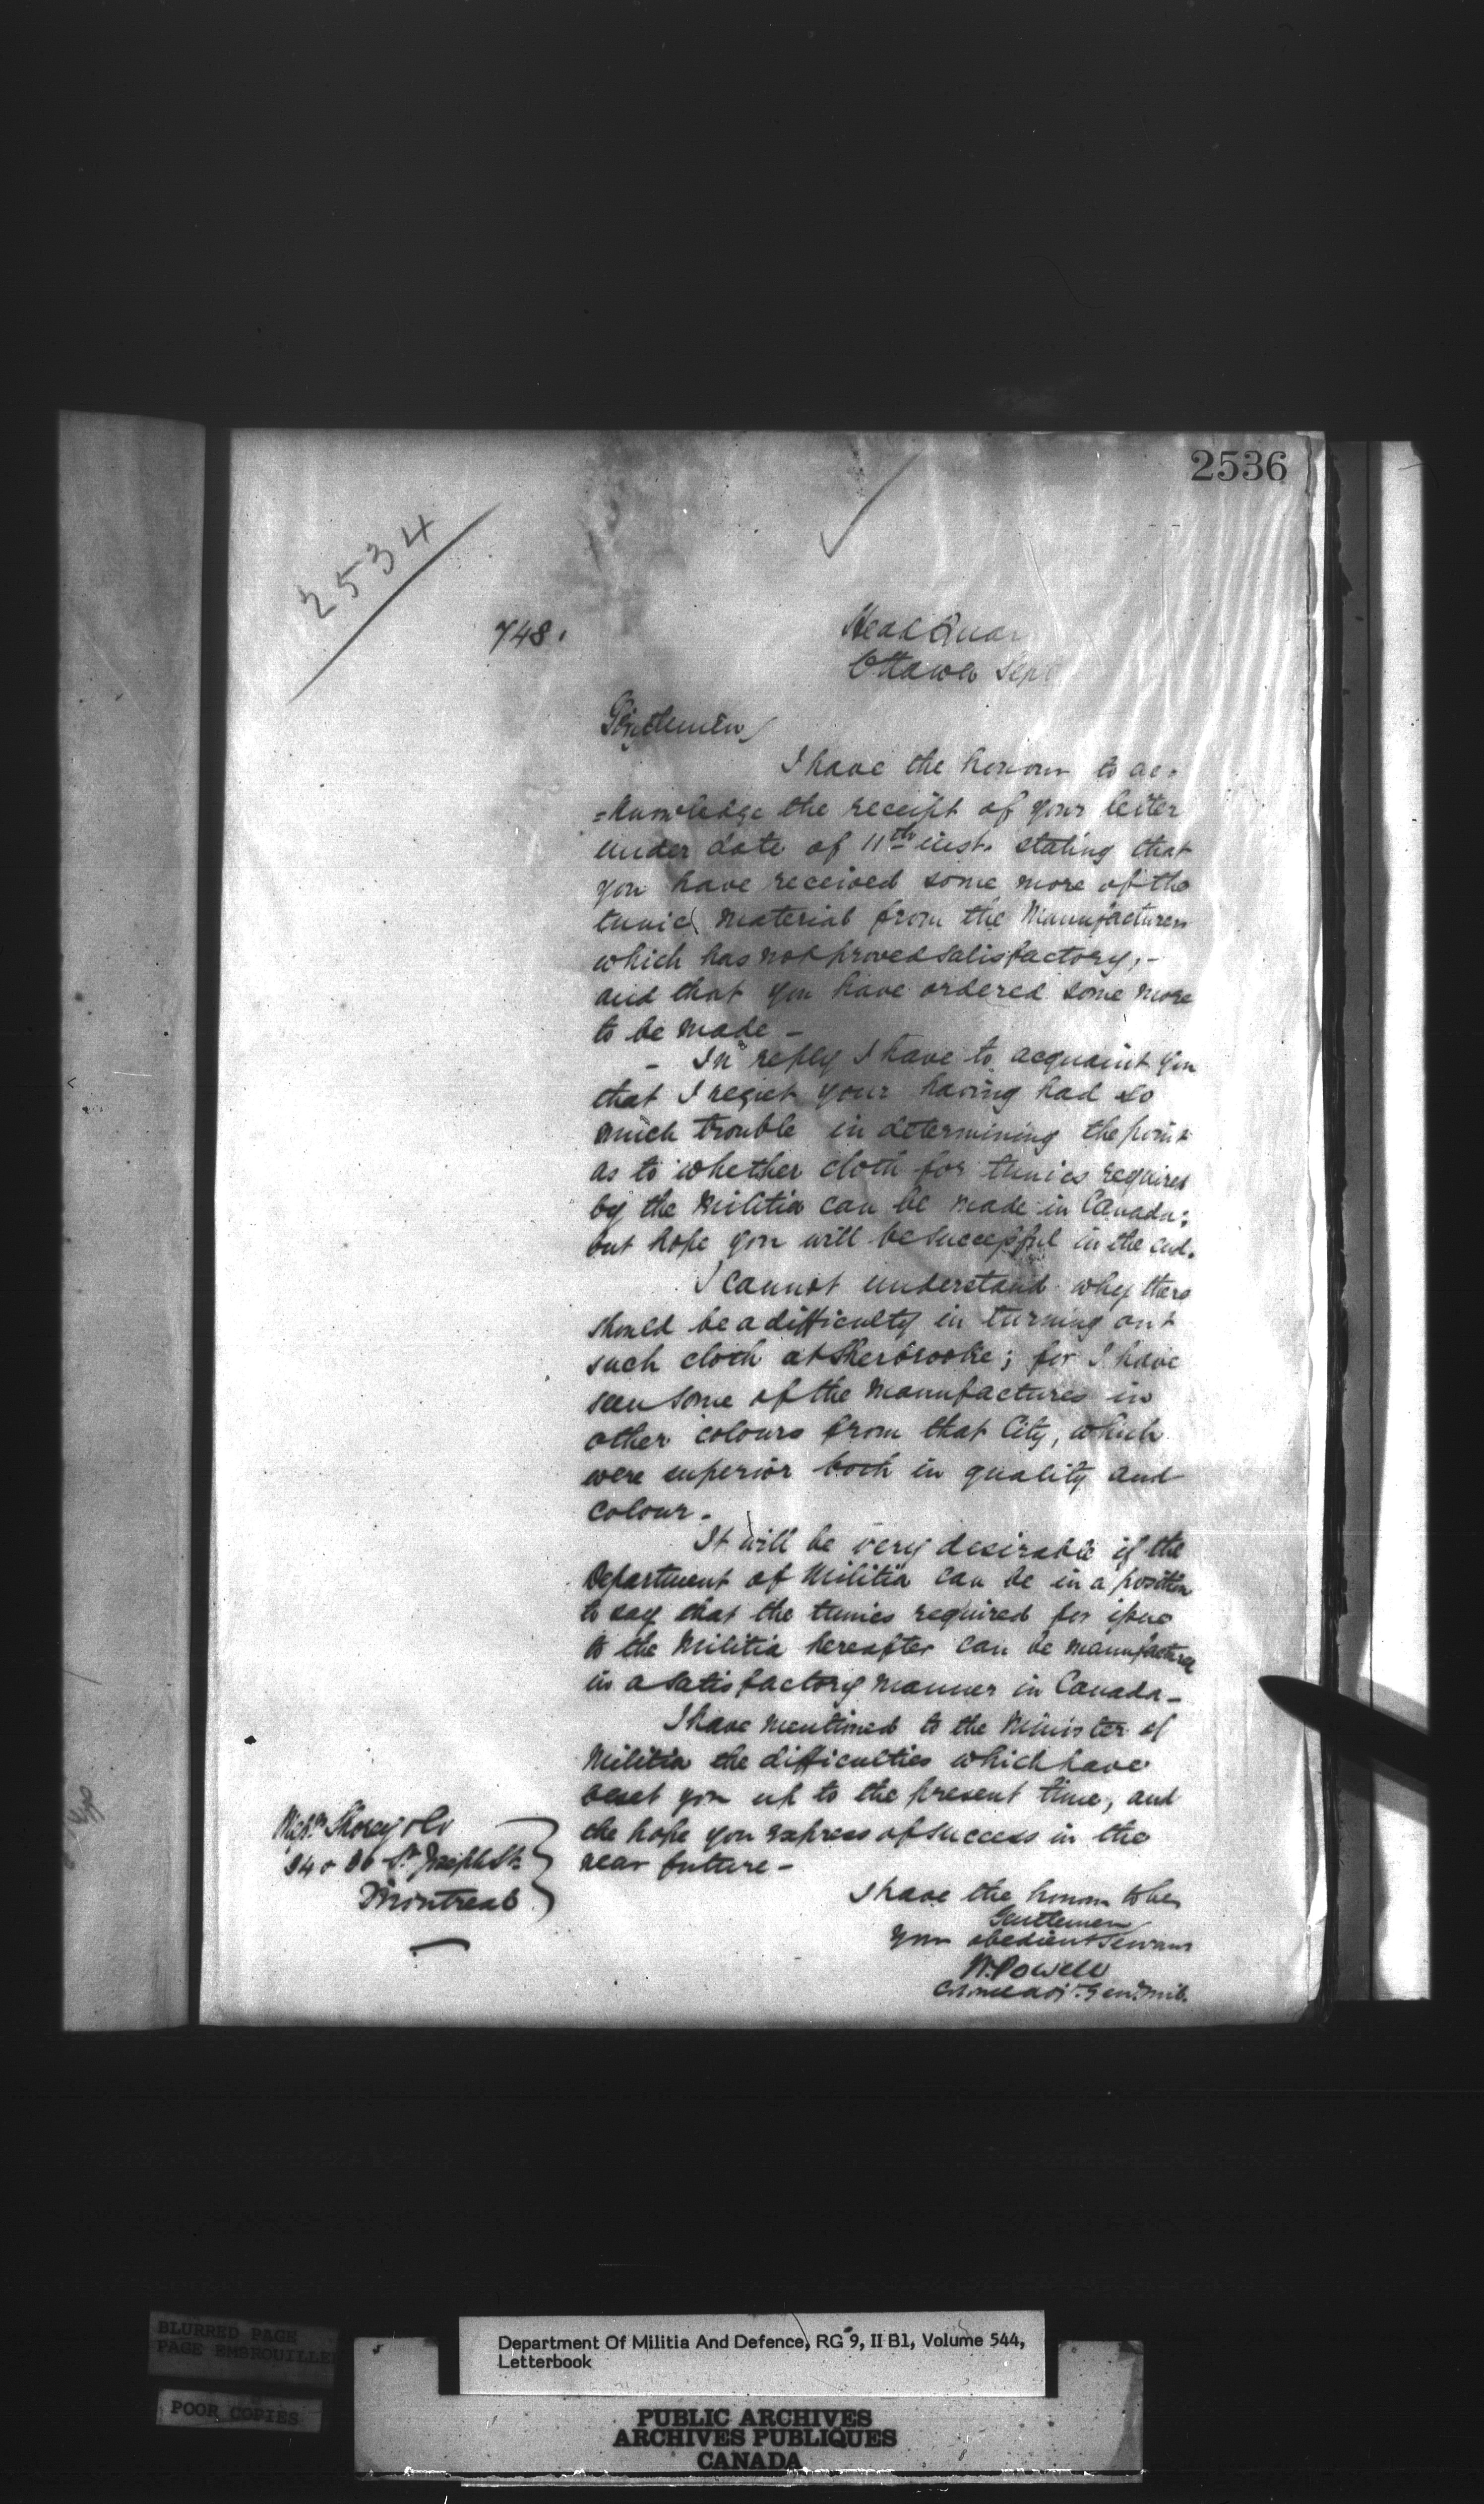 2536
2534
748.
Head Quar
Ottawa Sept
Gentlemen,
I have the honour to ac-
=knowledge the receipt of your letter
under date of 11th inst. stating that
you have received some more of the
tunic material from the Manufacturers
which has not proved satisfactory,-
and that you have ordered some more
to be made -
- In reply I have to acquaint you
that I regret your having had so
much trouble in determining the point
as to whether cloth for tunics required
by the Militia can be made in Canada;
but hope you will be successful in the end.
I cannot understand why there
should be a difficulty in turning out
such cloth at Sherbrooke; for I have
seen some of the manufactures in
other colours from that City, which
were superior both in quality and
colour.
It will be very desirable if the
Department of Militia can be in a position
to say that the tunics required for issue
to the Militia hereafter can be manufactured
in a satisfactory manner in Canada -
I have mentioned to the Minister of
Militia the difficulties which have
beset you up to the present time, and
the hope you express of success in the
near future -
I have the honour to be
Gentlemen
Your obedient Servant
W. Powell
Colonel Adjt. Genl. Mil.
Shorey & Co
34 & 36 St. Joseph St.
Montreal
BLURRED PAGE
PAGE EMBROUILLE
POOR COPIES
Department Of Militia And Defence, RG 9, II B1, Volume 544,
Letterbook
PUBLIC ARCHIVES
ARCHIVES PUBLIQUES
CANADA